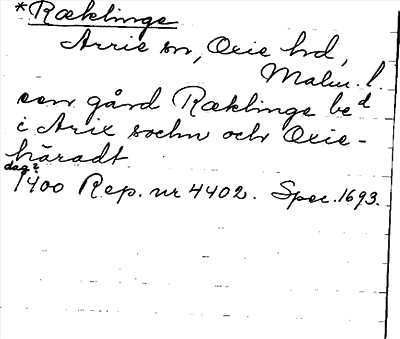 *Ræklinge
Arrie sn, Oxie hd,
Malm. l.
een gård Ræklinge bed
i Arix sochn och Oxie-
häradt
dag?
1400 Rep. nr 4402. Spec. 1693.